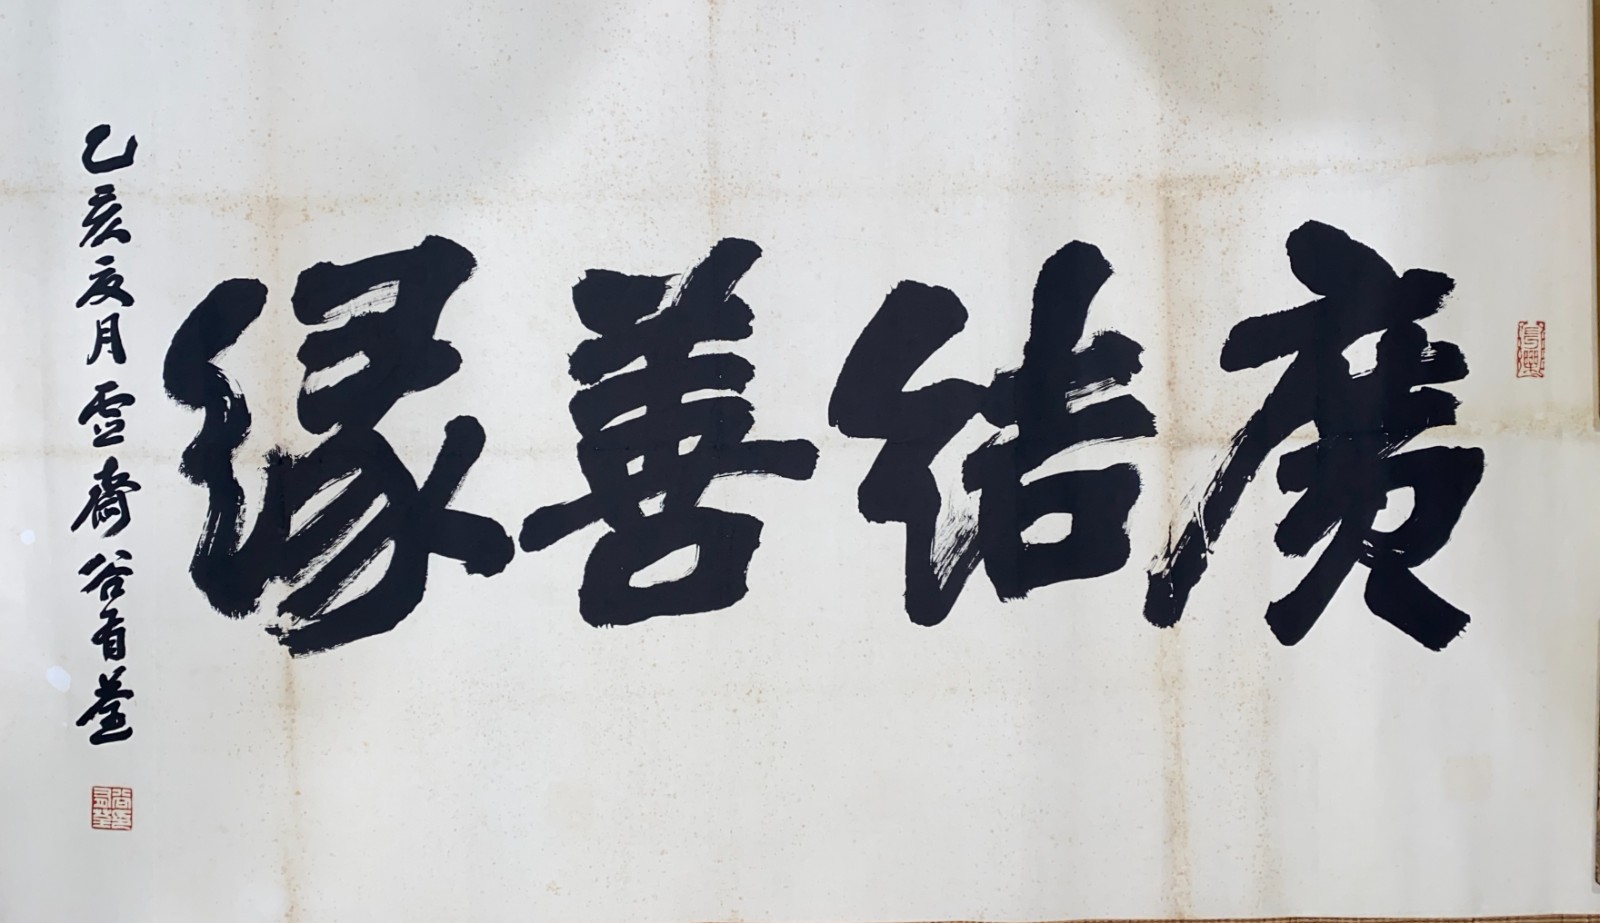 廣結善緣
乙亥夏月虛齋谷有荃